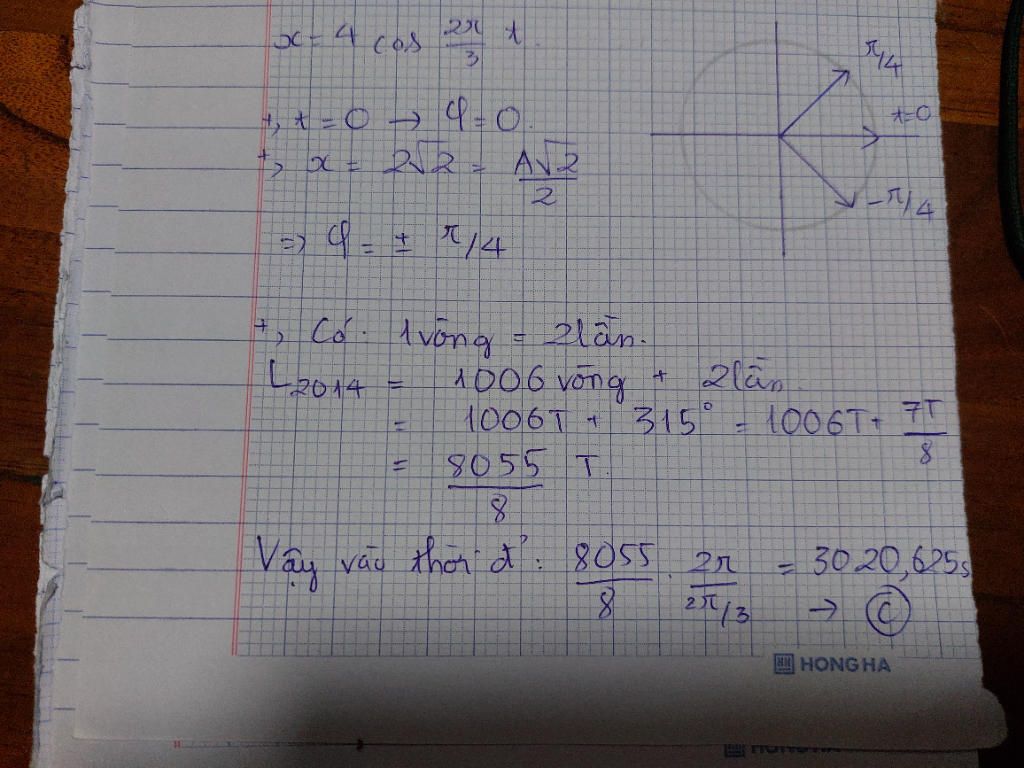 x = 4 cos 2π/3 t.
π/4
t=0
-π/4
+, t = 0 → φ = 0.
+, x = 2√2 = A√2/2
=> φ = ± π/4
+, Có: 1 vòng = 2 lần.
L2014 = 1006 vòng + 2 lần
= 1006T + 315° = 1006T + 7T/8
= 8055/8 T.
Vậy vào thời đ': 8055/8 . 2π/2π/3 = 3020,625s
→ C
HONG HA
HONG HA